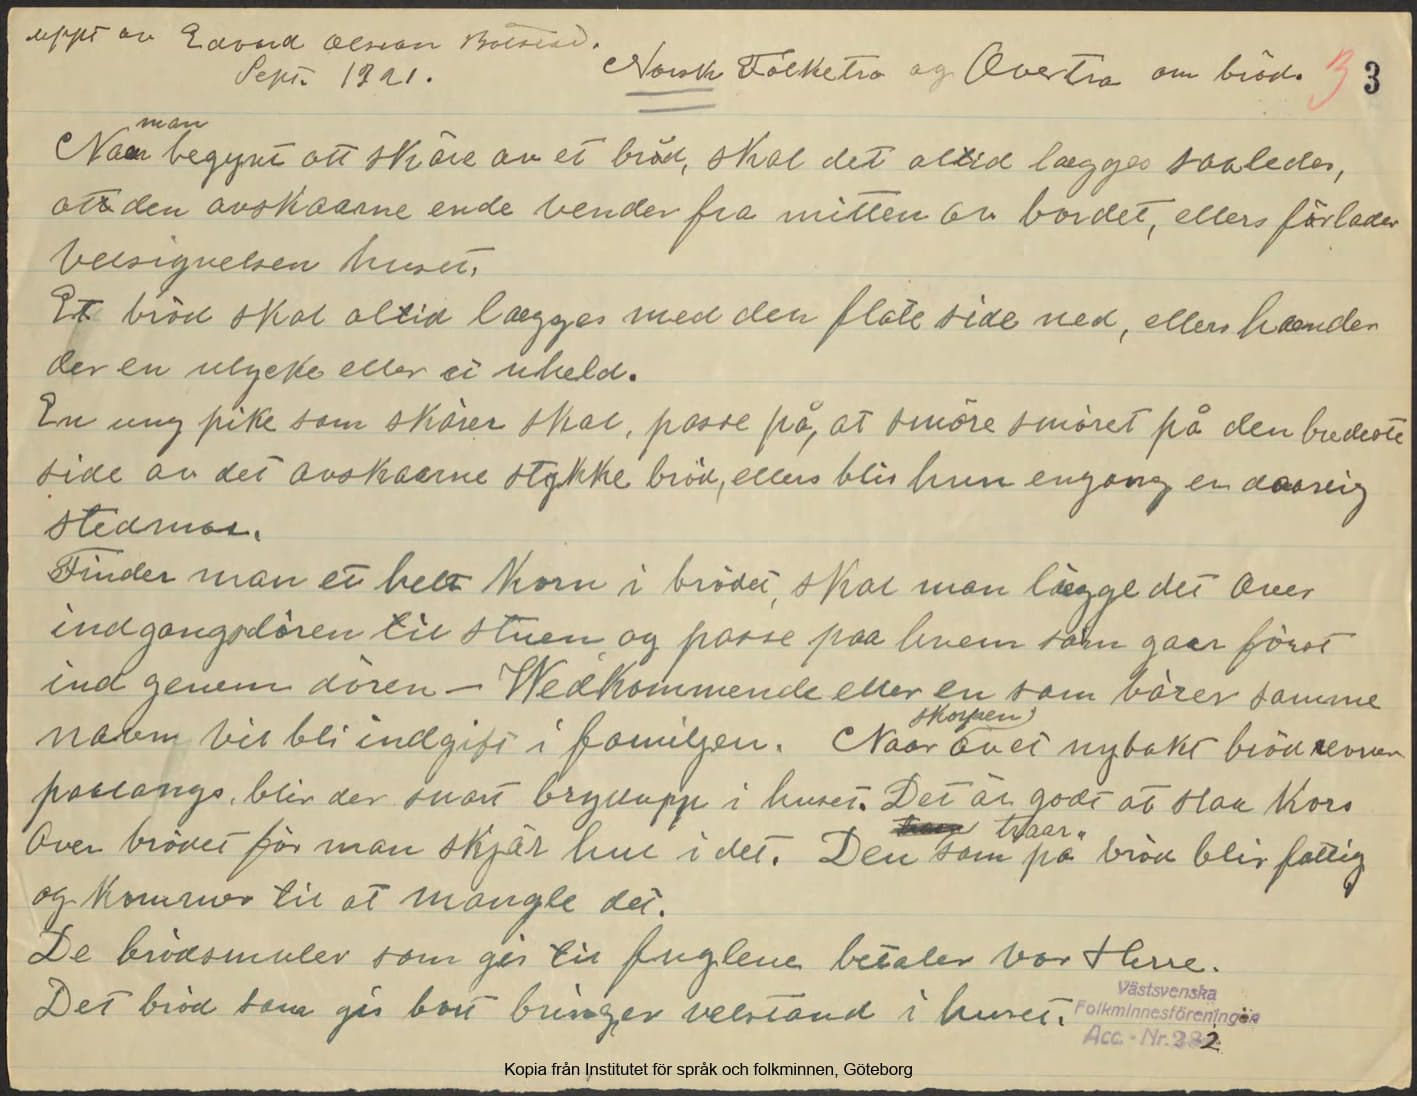 uppt av Edvard Olsson
Sept. 1921.
Norsk Folketro og Overtro om bröd. 3 3
man
Naar begynt att skäre av et bröd, skal det altid lægges saaledes,
att den avskaarne ende vender fra mitten av bordet, ellers förlader
velsignelsen huset.
Et bröd skal altid lægges med den flate side ned, ellers hænder
der en ulycke eller ei uheld.
En ung pike som skärer skal, passe på, at smöre smöret på den bredeste
side av det avskaarne stykke bröd, ellers blir hun engang en daarlig
stedmor.
Finder man et helt Korn i brödet, skal man lægge det over
indgangsdören til stuen og passe paa hvem som gaar först
ind genem dören — Wedkommende eller en som bärer samme
navn vil bli indgift i familjen. Naar skorpen av et nybakt bröd revner
paalangs, blir der snart bryllupp i huset. Det är godt at slaa Kors
over brödet för man skjär hul i det. Den som traar på bröd blir fattig
og Kommer til at mangle det.
De brödsmuler som gis til fuglene betaler vor Herre.
Det bröd som gis bort bringer velstand i huset.
Västsvenska
Folkminnesföreningen
Acc. - Nr. 282
Kopia från Institutet för språk och folkminnen, Göteborg